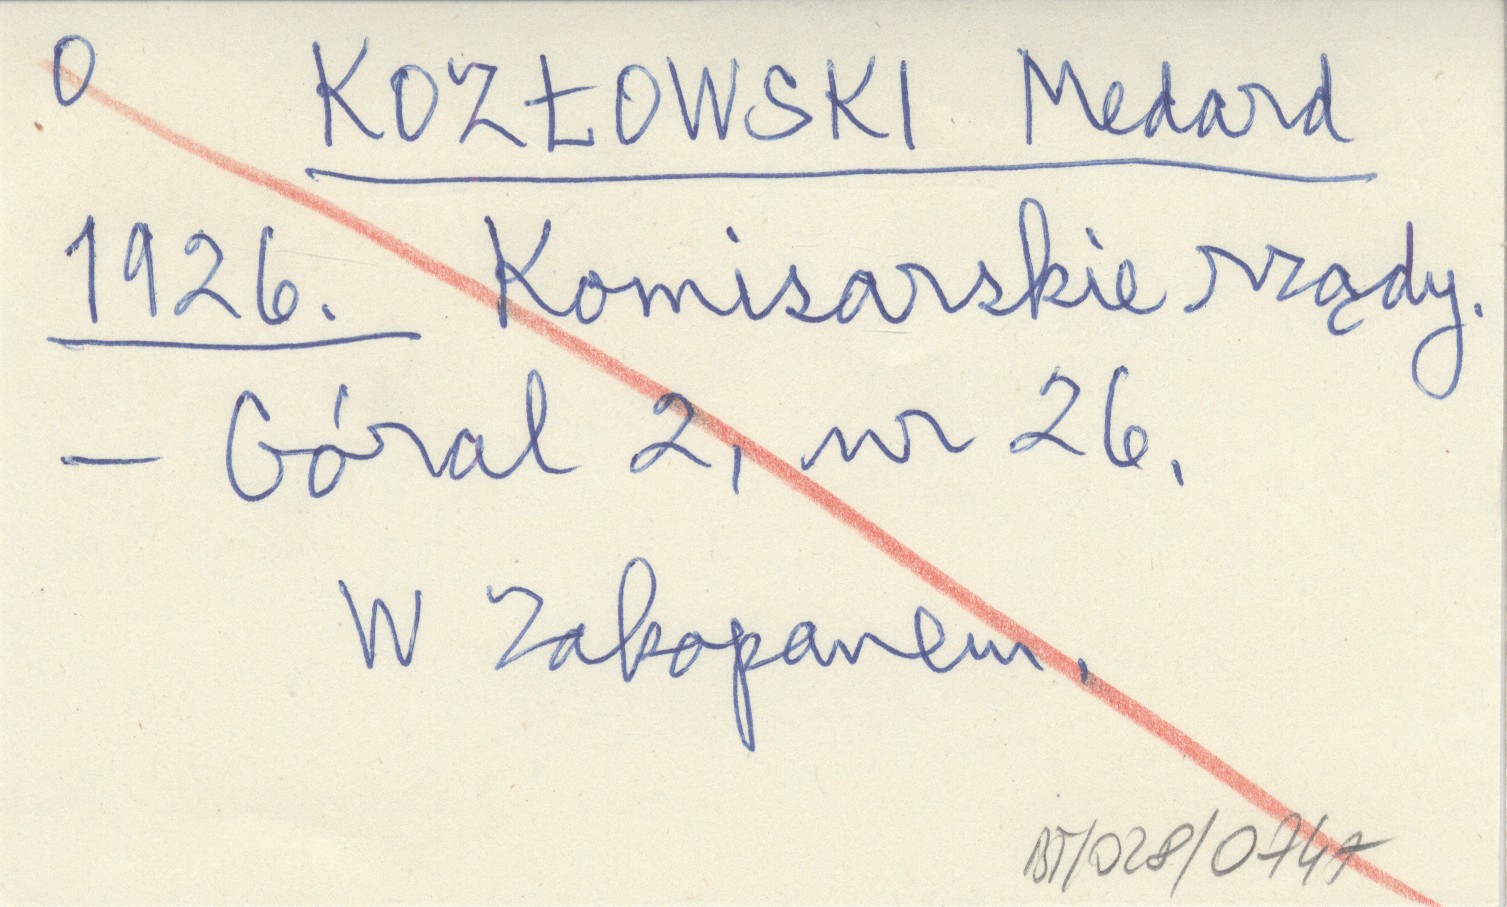 O KOZŁOWSKI Medard
1926. Komisarskie rządy.
— Góral 2, nr 26.
W Zakopanem.
BT/028/0747